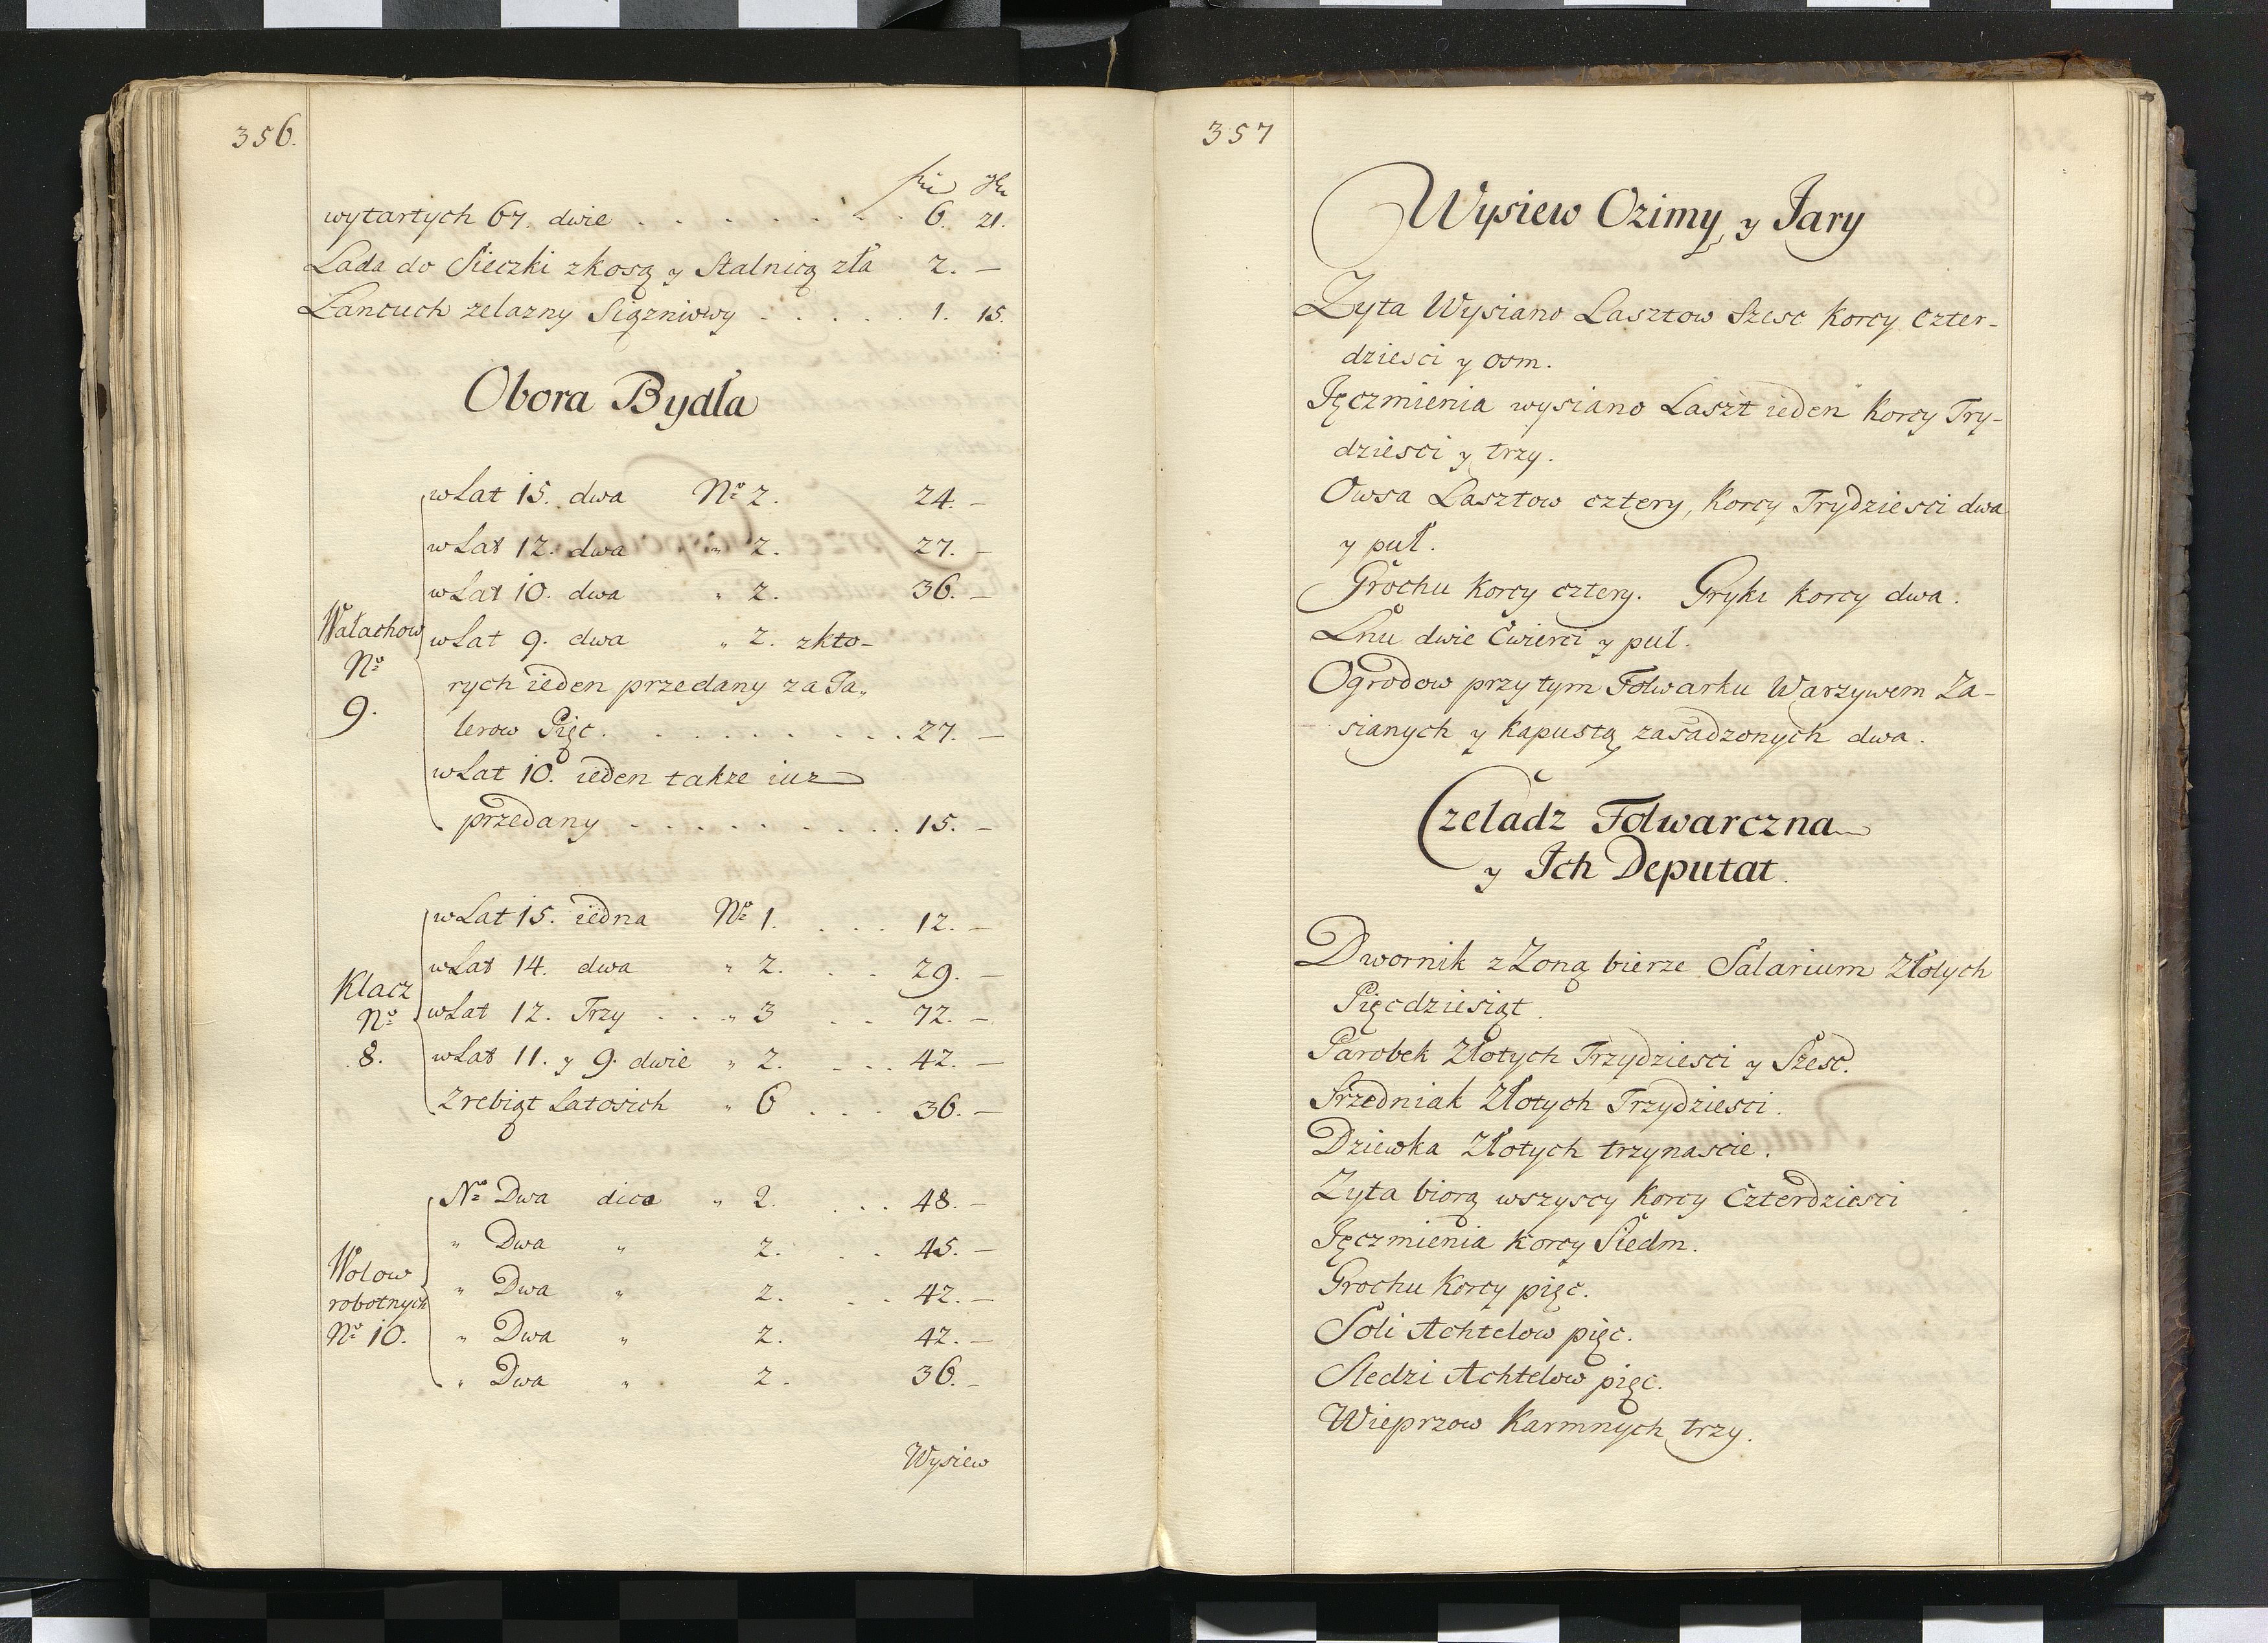 356.
fln gr
wytartych 67. dwie . . . . . . . . 6. 21.
Lada do Sieczki zkosą y Stalnicą zła 2. —
Łancuch zelazny Siązniowy . . . . . 1. 15.
Obora Bydła
Wałachow
Nº
9.
w Lat 15. dwa Nº 2. 24. —
w Lat 12. dwa " 2. 27. —
w Lat 10. dwa " 2. 36. —
w Lat 9. dwa " 2. zkto-
rych ieden przedany za Ta„
lerow Pięc . . . . . . . . . 27. —
w Lat 10. ieden takze iuz
przedany . . . . . . . . . 15. —
Klacz
Nº
8.
w Lat 15. iedna Nº 1. . . . 12. —
w Lat 14. dwa " 2. . . . 29. —
w Lat 12. Trzy . . . " 3 . . 72. —
w Lat 11. y 9. dwie " 2. . . . 42. —
Zrebiąt Latosich " 6 . . . 36. —
Wolow
robotnych
Nº 10.
Nº Dwa dico " 2. . . . 48. —
" Dwa " 2. . . 45. —
" Dwa " 2. . . 42. —
" Dwa " 2. 42. —
" Dwa " 2. 36. —
Wysiew
357
Wysiew Ozimy y Jary
Zyta Wysiano Lasztow Szesc Korcy Czter-
dziesci y osm.
Jęczmienia wysiano Laszt ieden Korcy Try-
dziesci y trzy.
Owsa Lasztow cztery, Korcy Trydziesci dwa
y puł.
Grochu Korcy cztery. Gryki Korcy dwa.
Lnu dwie Cwierci y pul.
Ogrodow przy tym Folwarku Warzywem Za-
sianych y Kapustą zasadzonych dwa.
Czeladz Folwarczna
y Ich Deputat.
Dwornik z Zoną bierze Salarium Złotych
Pięcdziesiąt.
Parobek Złotych Trzydziesci y Szesc.
Srzedniak Złotych Trzydziesci.
Dziewka Złotych trzynascie.
Zyta biorą wszyscy Korcy Czterdziesci
Jęczmienia Korcy Siedm.
Grochu Korcy pięc.
Soli Achtelow pięc.
Sledzi Achtelow pięc.
Wieprzow Karmnych trzy.